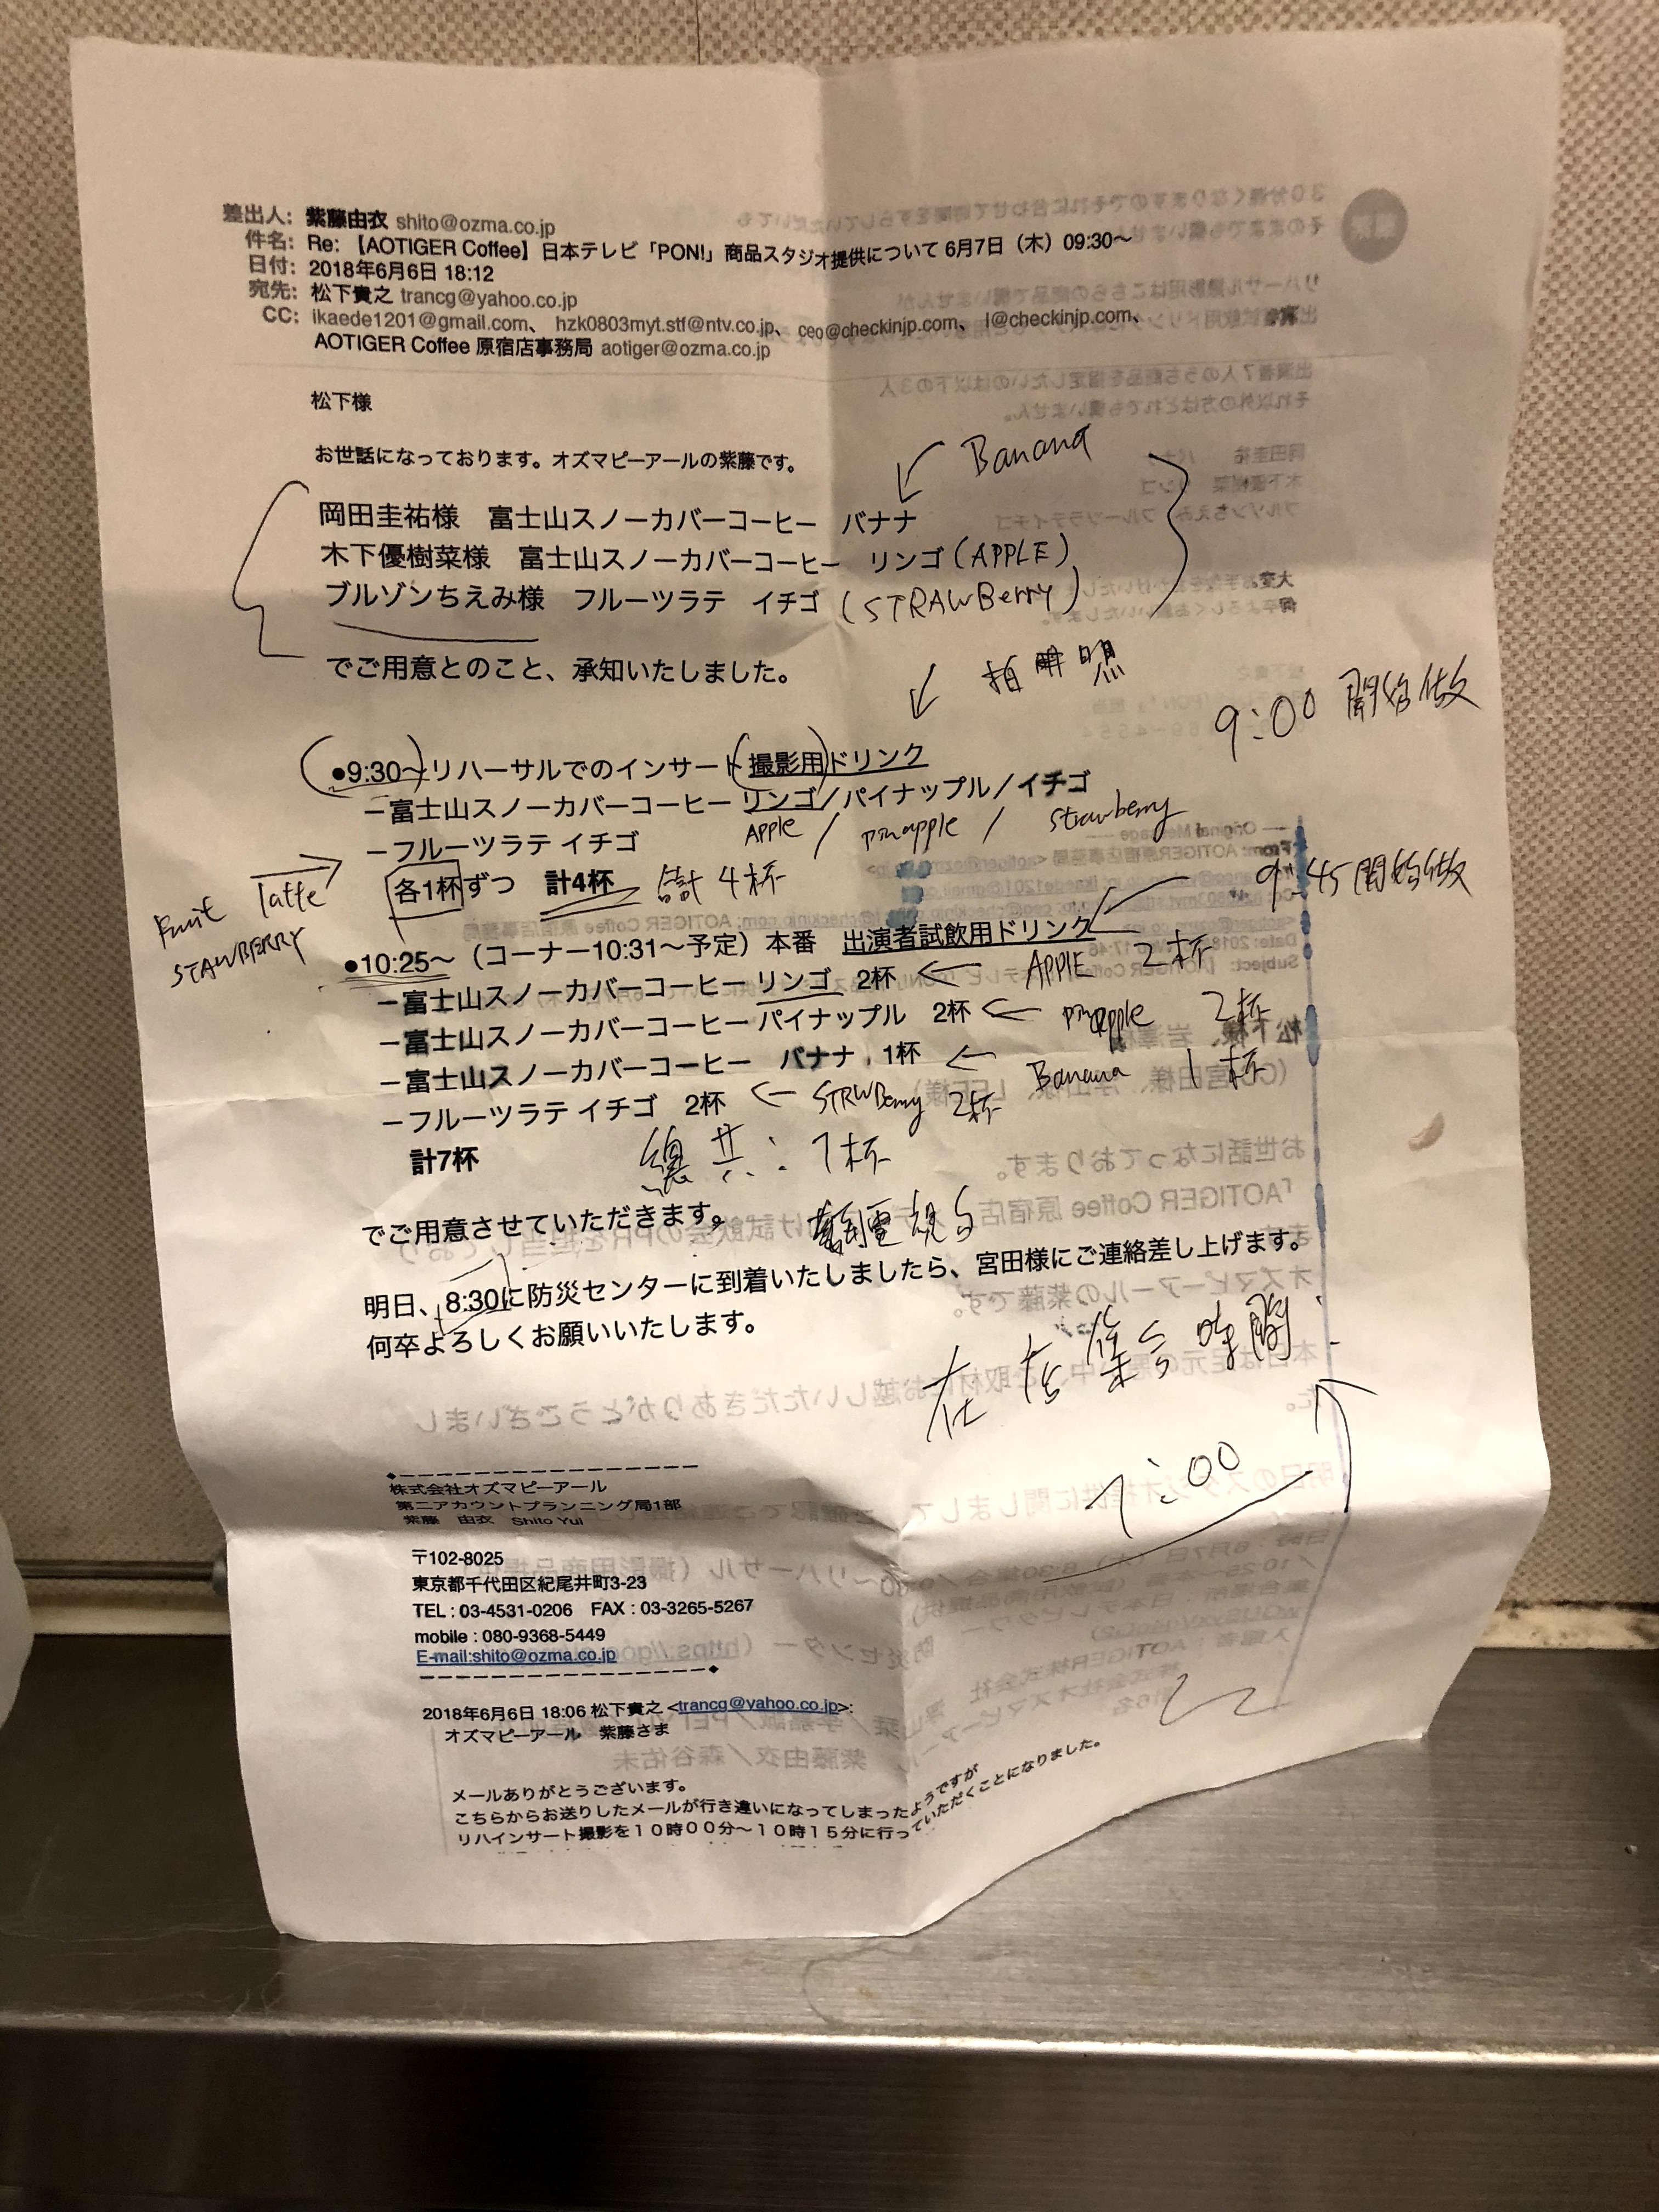 差出人: 紫藤由衣 shito@ozma.co.jp
件名: Re: 【AOTIGER Coffee】日本テレビ「PON!」商品スタジオ提供について 6月7日（木）09:30〜
日付: 2018年6月6日 18:12
宛先: 松下貴之 trancg@yahoo.co.jp
CC: ikaede1201@gmail.com、 hzk0803myt.stf@ntv.co.jp、 ceo@checkinjp.com、 l@checkinjp.com、
AOTIGER Coffee 原宿店事務局 aotiger@ozma.co.jp
松下様
お世話になっております。オズマピーアールの紫藤です。
Banana
岡田圭祐様 富士山スノーカバーコーヒー バナナ
木下優樹菜様 富士山スノーカバーコーヒー リンゴ (APPLE)
ブルゾンちえみ様 フルーツラテ イチゴ (STRAWBerry)
でご用意とのこと、承知いたしました。
9:00 開始做
●9:30〜リハーサルでのインサート撮影用ドリンク
ー富士山スノーカバーコーヒー リンゴ／パイナップル／イチゴ
Apple / pineapple / Strawberry
ーフルーツラテ イチゴ
Fruit latte
STAWBERRY
各1杯ずつ 計4杯 4杯
9:45 開始做
●10:25〜（コーナー10:31〜予定）本番 出演者試飲用ドリンク
ー富士山スノーカバーコーヒー リンゴ 2杯 ← APPLE 2杯
ー富士山スノーカバーコーヒー パイナップル 2杯 ← pineapple 2杯
ー富士山スノーカバーコーヒー バナナ 1杯 ← Banana 1杯
ーフルーツラテ イチゴ 2杯 ← STRWBerry 2杯
計7杯 總共: 7杯
でご用意させていただきます。
明日、8:30に防災センターに到着いたしましたら、宮田様にご連絡差し上げます。
何卒よろしくお願いいたします。
在店集合時間
7:00
株式会社オズマピーアール
第二アカウントプランニング局1部
紫藤 由衣 Shito Yui
〒102-8025
東京都千代田区紀尾井町3-23
TEL : 03-4531-0206 FAX : 03-3265-5267
mobile : 080-9368-5449
E-mail:shito@ozma.co.jp
2018年6月6日 18:06 松下貴之 <trancg@yahoo.co.jp>:
オズマピーアール 紫藤さま
メールありがとうございます。
こちらからお送りしたメールが行き違いになってしまったようですが
リハインサート撮影を１０時００分〜１０時１５分に行っていただくことになりました。